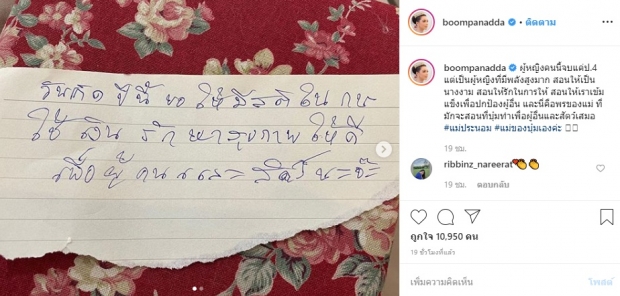 วันเกิด ปีนี้ ขอ ให้ มีสติ ใน การ
ใช้ เงิน รักษาสุขภาพ ให้ ดี
เพื่อ ผู้ คน และ สัตว์ นะจ๊ะ
boompanadda • ติดตาม
boompanadda ผู้หญิงคนนี้จบแค่ป.4
แต่เป็นผู้หญิงที่มีพลังสูงมาก สอนให้เป็น
นางงาม สอนให้รักในการให้ สอนให้เราเข้ม
แข็งเพื่อปกป้องผู้อื่น และนี่คือพรของแม่ ที่
มักจะสอนที่บุ๋มทำเพื่อผู้อื่นและสัตว์เสมอ
#แม่ประนอม #แม่ของบุ๋มเองค่ะ
19 ชม.
ribbinz_nareerat
19 ชม. ตอบกลับ
ถูกใจ 10,950 คน
19 ชั่วโมงที่แล้ว
เพิ่มความคิดเห็น... โพสต์